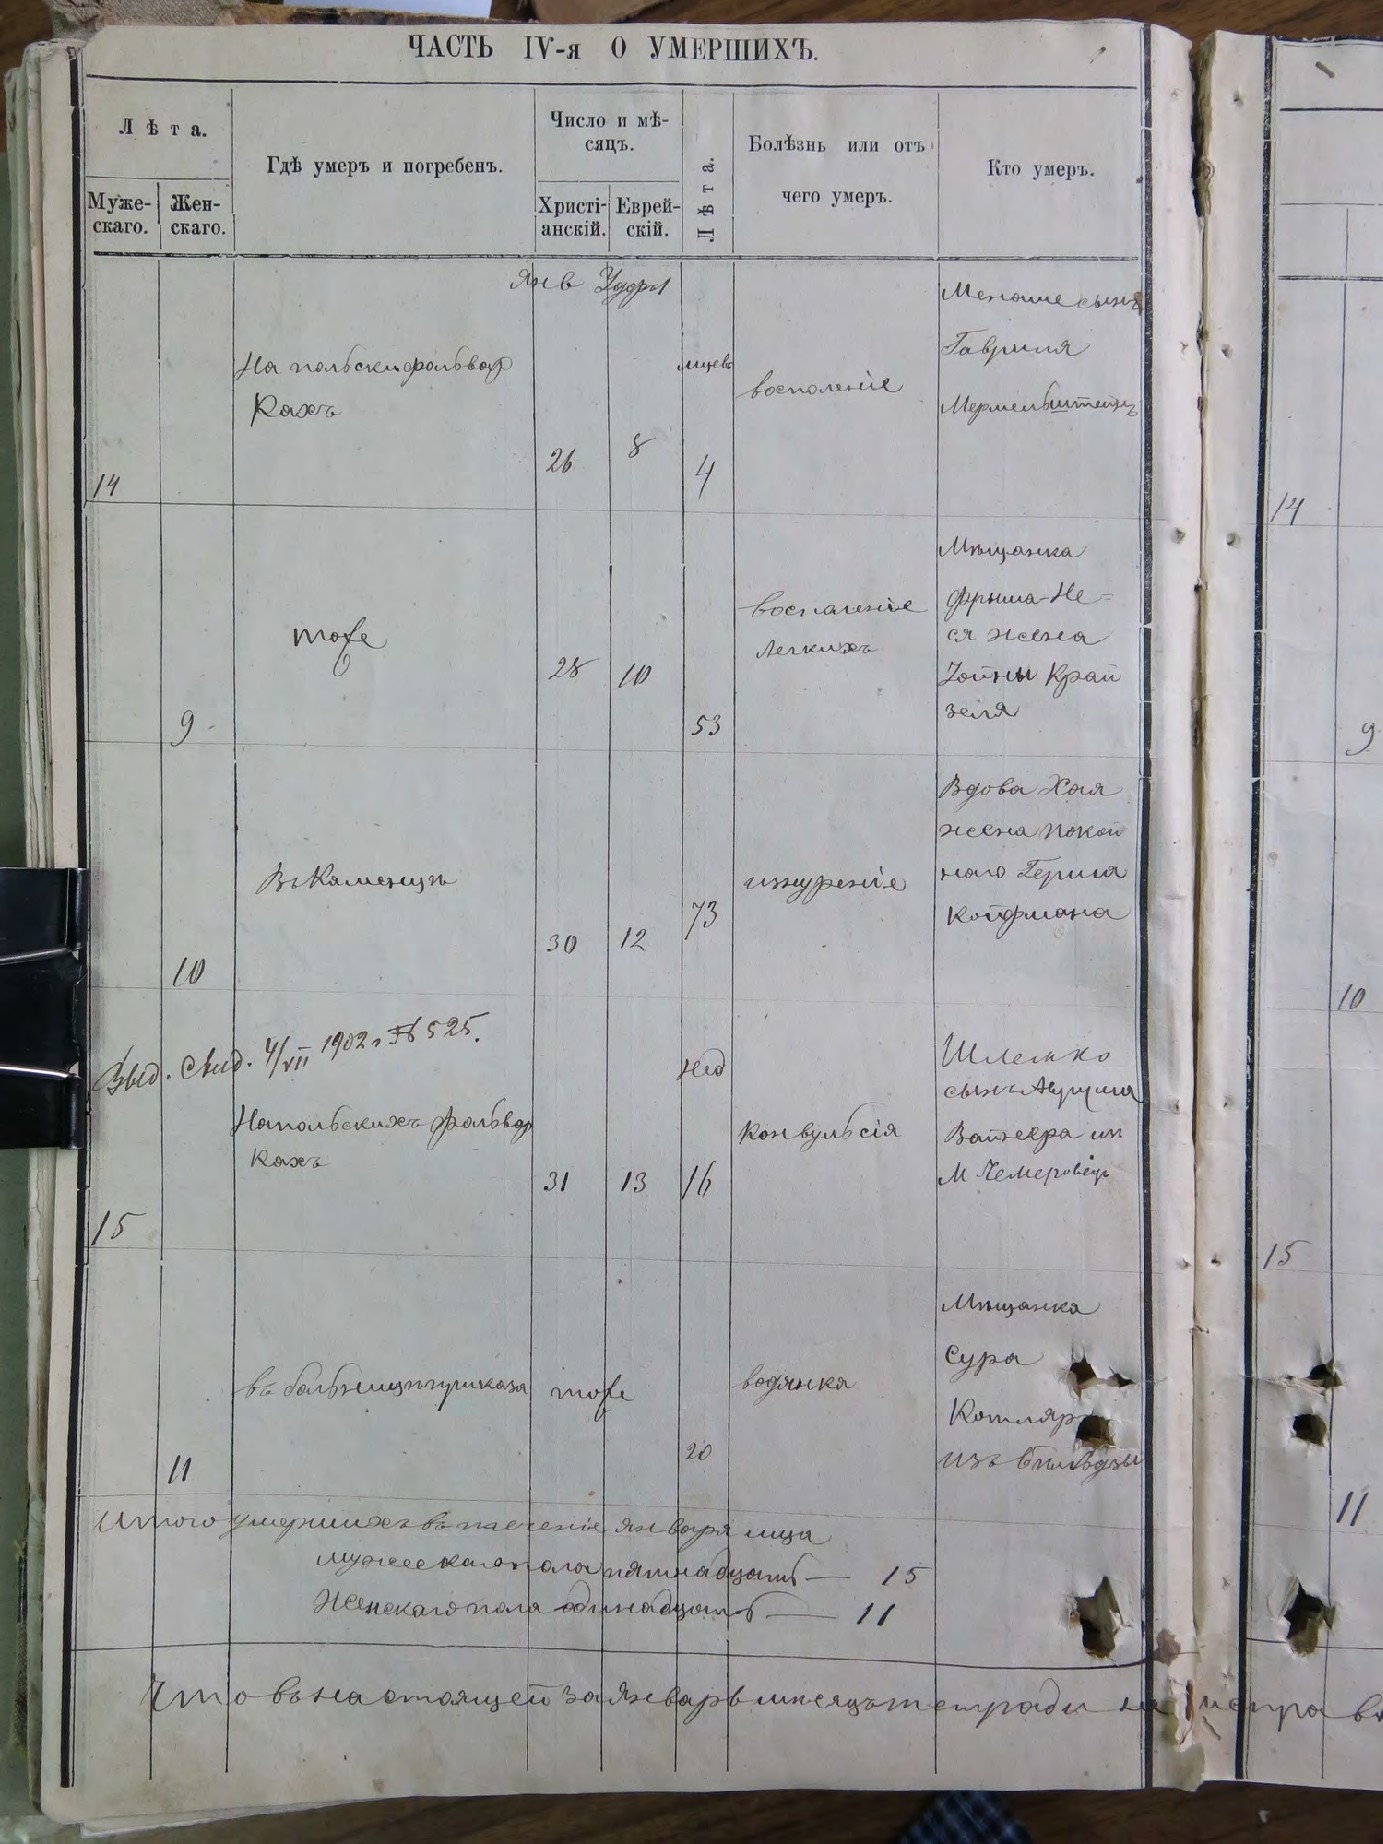 ЧАСТЬ IV-я О УМЕРШИХЪ.
Лѣта.
Муже-
скаго.
Жен-
скаго.
Гдѣ умеръ и погребенъ.
Число и мѣ-
сяцъ.
Христі-
анскій.
Еврей-
скій.
Лѣта.
Болѣзнь или отъ
чего умеръ.
Кто умеръ.
Янв
14
На польски фольвар
кахъ
26
8
мцевъ
4
восполеніе
Менаше сынъ
Гавриля
Мермельштейнъ
14
9
тоже
28
10
53
воспаленіе
легкихъ
Мѣщанка
Фрыма-Не=
ся жена
Зойны Край
зеля
9
10
Въ Каменцѣ
30
12
73
изнуреніе
Вдова Хая
жена покой
наго Герша
Койфмана
10
Выд. свид. 4/VII 1902 г № 525.
15
На польскихъ фольвар
кахъ
31
13
нед
16
конвульсія
Шлемко
сынъ
М Чемеровецъ
15
11
въ больницѣ приказа
тоже
20
водянка
Мѣщанка
Сура
Котляр
изъ
11
Итого умершихъ въ теченіе января мца
мужескаго пола пятнадцать — 15
женскаго пола одинадцать — 11
Что въ настоящей за Январь мѣсяцъ тетради